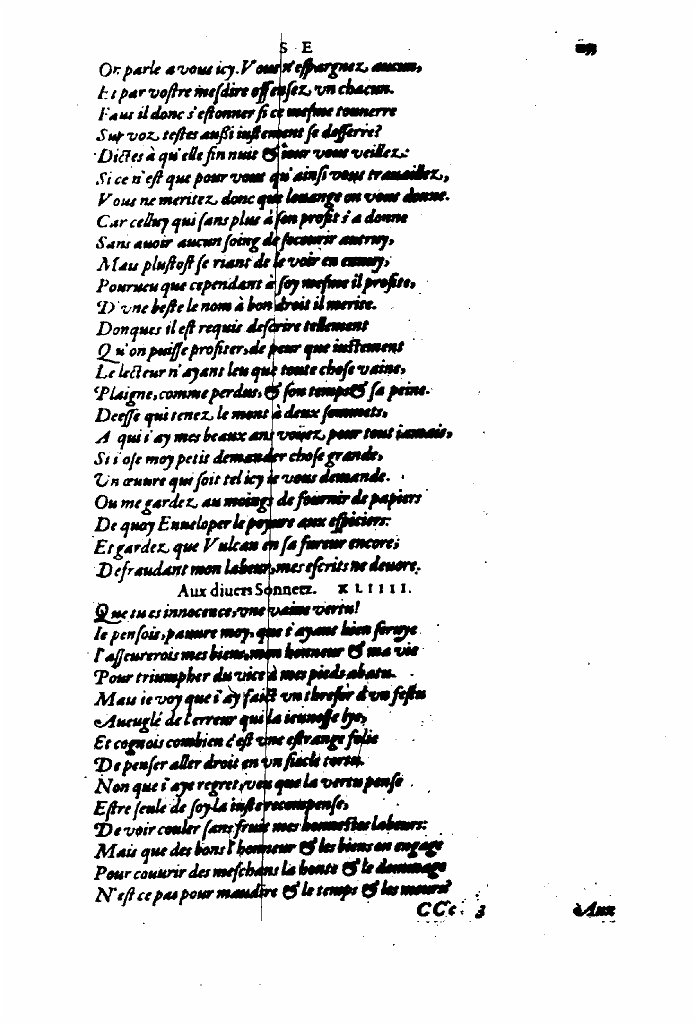 S E
Or parle a vous icy. Vous n'espargnez aucun,
Et par vostre mesdire offensez vn chacun.
Faut il donc s'estonner si ce mesme tonnerre
Sur voz testes aussi iustement se desserre?
Dictes à qu'elle fin nuit & iour vous veillez:
Si ce n'est que pour vous qu'ainsi vous trauaillez,
Vous ne meritez donc que louange on vous donne.
Car celluy qui sans plus à son profit s'adonne
Sans auoir aucun soing de secourir autruy,
Mais plustost se riant de le voir en ennuy,
Pourueu que cependant à soy mesme il profite,
D'vne beste le nom à bon droit il merite.
Donques il est requis descrire tellement
Qu'on puisse profiter, de peur que iustement
Le lecteur n'ayant leu que toute chose vaine,
Plaigne, comme perdus, & son temps & sa peine.
Deesse qui tenez le mont à deux sommets,
A qui i'ay mes beaux ans vouez pour tout iamais,
Si i'ose moy petit demander chose grande,
Un œuure qui soit tel icy ie vous demande.
Ou me gardez au moings de fournir de papiers
De quoy Enueloper le poyure aux espiciers:
Et gardez que Vulcan en sa fureur encore,
Defraudant mon labeur, mes escrits ne deuore.
Aux diuers Sonnetz. XLIIII.
Que tu es innocence, vne vaine vertu!
Ie pensois, pauure moy, que t'ayant bien seruye
I'asseurerois mes biens, mon honneur & ma vie
Pour triumpher du vice à mes pieds abatu.
Mais ie voy que i'ay faict vn thresor d'vn festu
Aueuglé de l'erreur qui la ieunesse lye,
Et cognois combien c'est vne estrange folie
De penser aller droit en vn siecle tortu.
Non que i'aye regret, veu que la vertu pense
Estre seule de soy la iuste recompense,
De voir couler sans fruit mes honnestes labeurs:
Mais que des bons l'honneur & les biens on engage
Pour couurir des meschans la honte & le dommage
N'est ce pas pour maudire & le temps & les meurs?
CCc 3 Aux